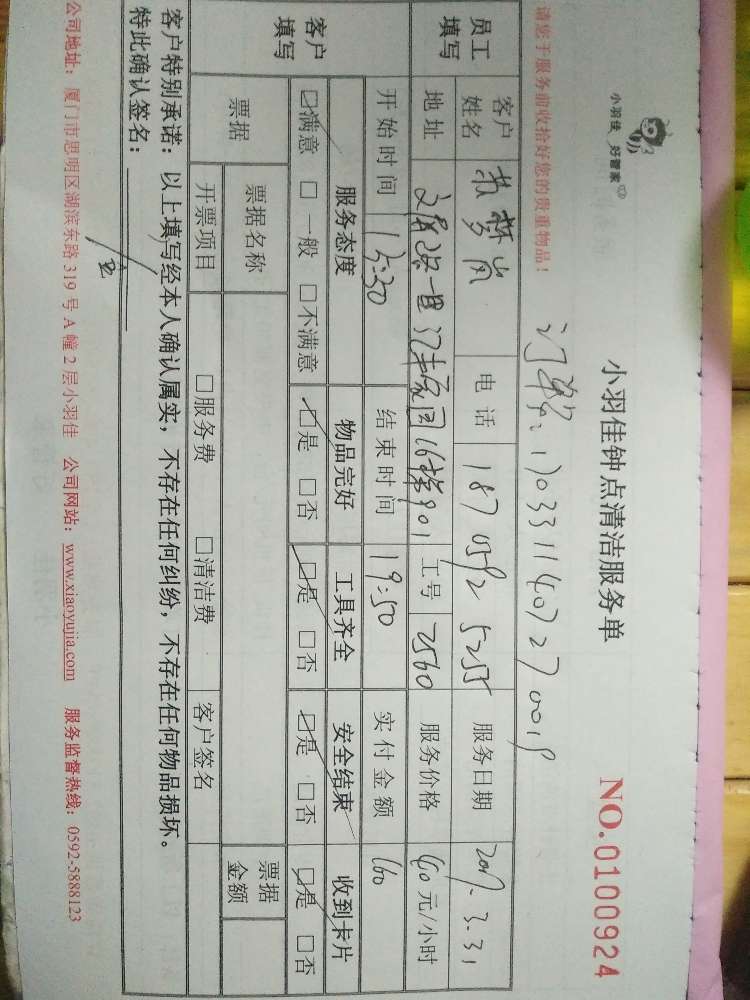 小羽佳 好管家
小羽佳钟点清洁服务单
NO.0100924
请您于服务前收拾好您的贵重物品！
员工填写
客户姓名
电话 187 0592 5255 服务日期 2017.3.31
地址 工号 2560 服务价格 40元/小时
开始时间 15:30 结束时间 19:50 实付金额 160
客户填写
服务态度 物品完好 工具齐全 安全结束 收到卡片
☑满意 □一般 □不满意 ☑是 □否 ☑是 □否 ☑是 □否 ☑是 □否
票据 票据名称 票据金额
开票项目 □服务费 □清洁费 客户签名
客户特别承诺：以上填写经本人确认属实，不存在任何纠纷，不存在任何物品损坏。
特此确认签名：
公司地址：厦门市思明区湖滨东路319号A幢2层小羽佳 公司网站：www.xiaoyujia.com 服务监督热线：0592-5888123